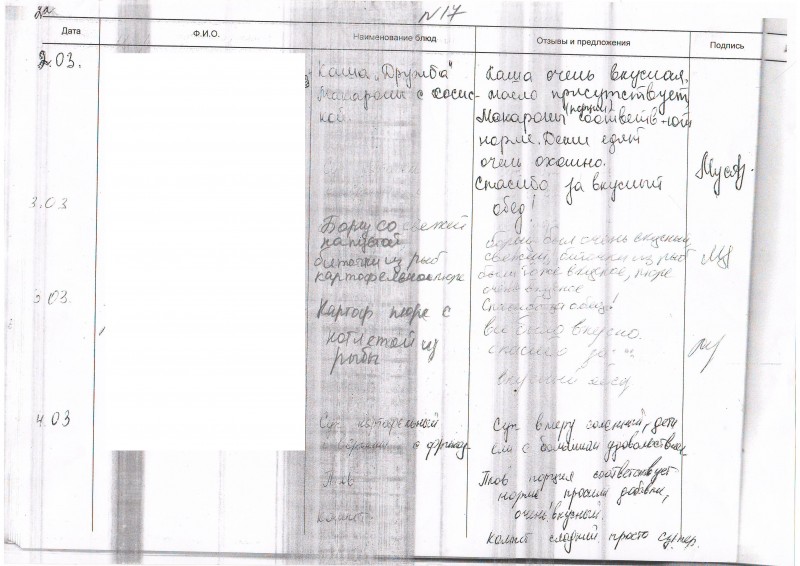 №17
Дата Ф.И.О. Наименование блюд Отзывы и предложения Подпись
2.03. Каша "Дружба" Каша очень вкусная,
Макароны с сосис- масло присутствует
кой Макароны (порция) соответств-ют
норме. Дети едят
очень охотно.
Спасибо за вкусный
обед!
3.03
Борщ со свежей борщ был очень вкусный,
капустой свежий, биточки из рыб
биточки из рыб были тоже вкусные, пюре
картофельное пюре очень вкусное
3.03 Спасибо за обед!
Картоф пюре с всё было вкусно.
котлетой из спасибо за
рыбы вкусный обед
4.03 Суп картофельный Суп в меру соленный, дети
с фрикад- ели с большим удовольствием
Плов Плов порция соответствует
норме просили добавки,
очень вкусный.
компот Компот сладкий просто супер.